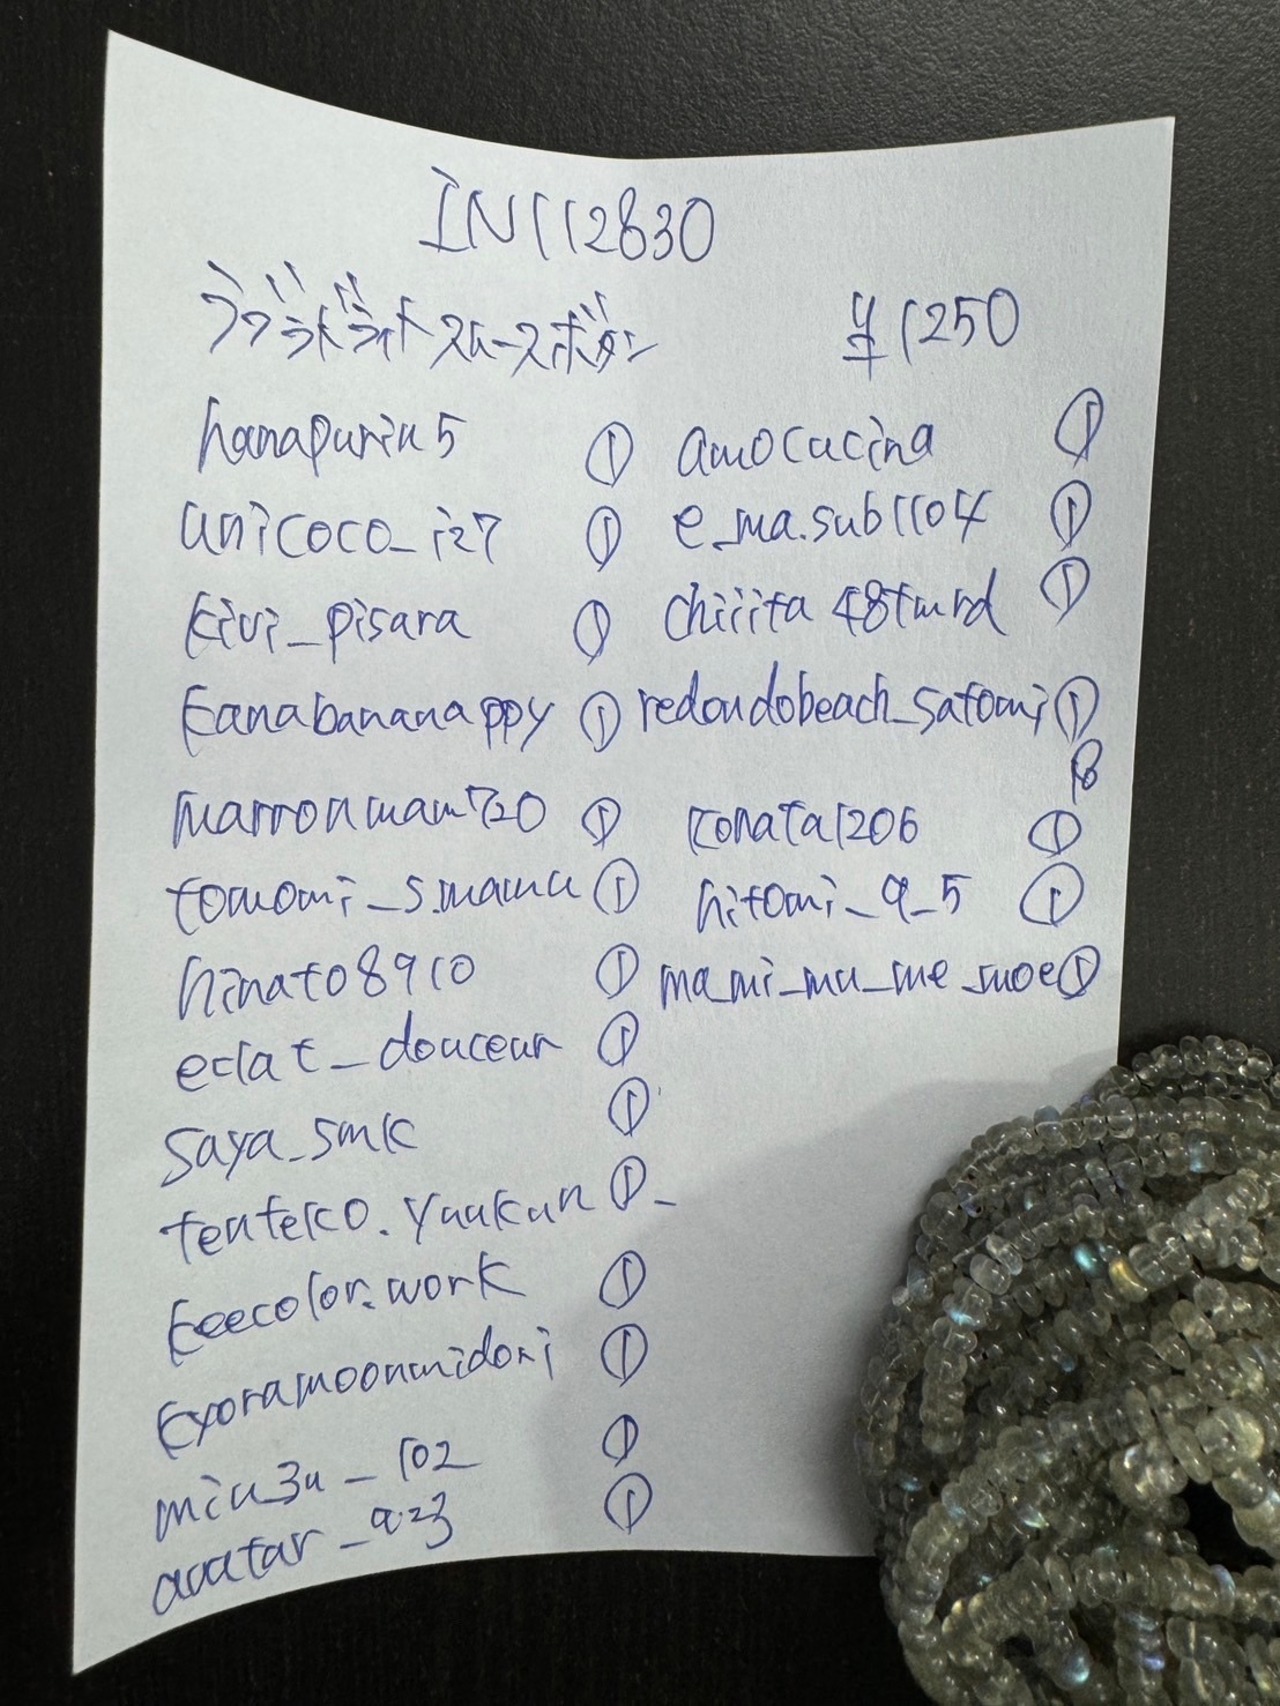 IN112830
ラブラドライトスムースボタン ¥1250
hanapurin5 ①
unicoco_i27 ①
kivi_pisara ①
kanabananappy ①
marronmam720 ①
tomomi_s.mamu ①
hinato8910 ①
eclat_douceur ①
saya_smk ①
tenteko.yuukun ①
keecolor.work ①
kyoramoonmidori ①
miu_3u_102 ①
avatar_923 ①
amocucina ①
e_ma.sub1104 ①
chiiita48tmrd ①
redondobeach_satomi ①
konata1206 ①
hitomi_9_5 ①
ma_mi_mu_me_moe ①